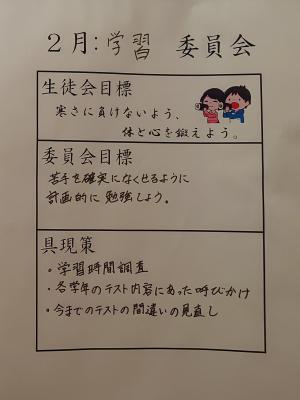 2月:学習 委員会
生徒会目標
寒さに負けないよう、
体と心を鍛えよう。
委員会目標
苦手を確実になくせるように
計画的に勉強しよう。
具現策
・学習時間調査
・各学年のテスト内容にあった呼びかけ
・今までのテストの間違いの見直し